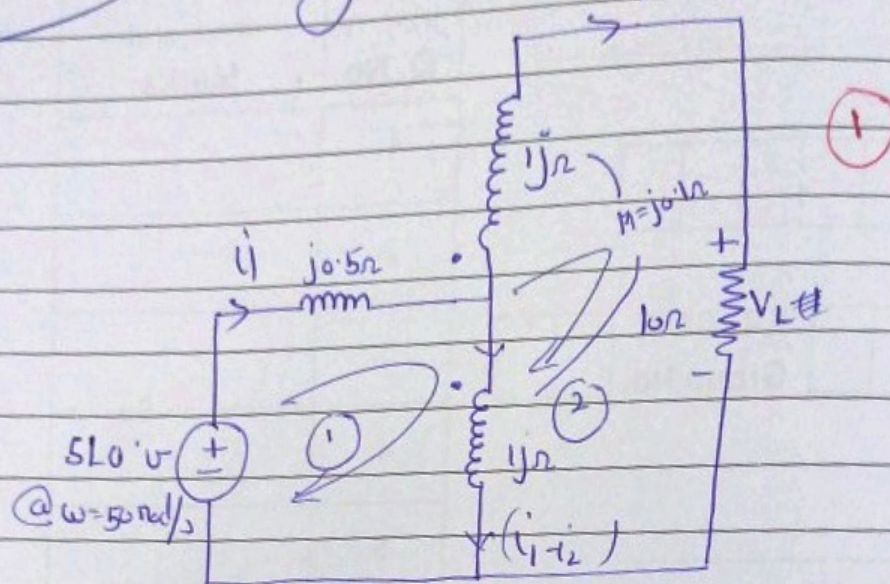 1
1jΩ
M=j0.1Ω
i1 j0.5Ω
+
10Ω VL
-
5∠0° v
+
-
1
2
1jΩ
@ω=50rad/s
(i1-i2)